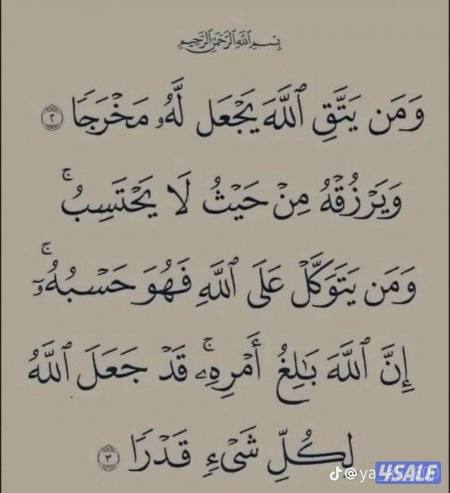 بِسْمِ اللَّهِ الرَّحْمَٰنِ الرَّحِيمِ
وَمَن يَتَّقِ ٱللَّهَ يَجْعَل لَّهُۥ مَخْرَجًا ٢
وَيَرْزُقْهُ مِنْ حَيْثُ لَا يَحْتَسِبُ ۚ
وَمَن يَتَوَكَّلْ عَلَى ٱللَّهِ فَهُوَ حَسْبُهُۥٓ ۚ
إِنَّ ٱللَّهَ بَٰلِغُ أَمْرِهِۦ ۚ قَدْ جَعَلَ ٱللَّهُ
لِكُلِّ شَىْءٍ قَدْرًا ٣
4SALE